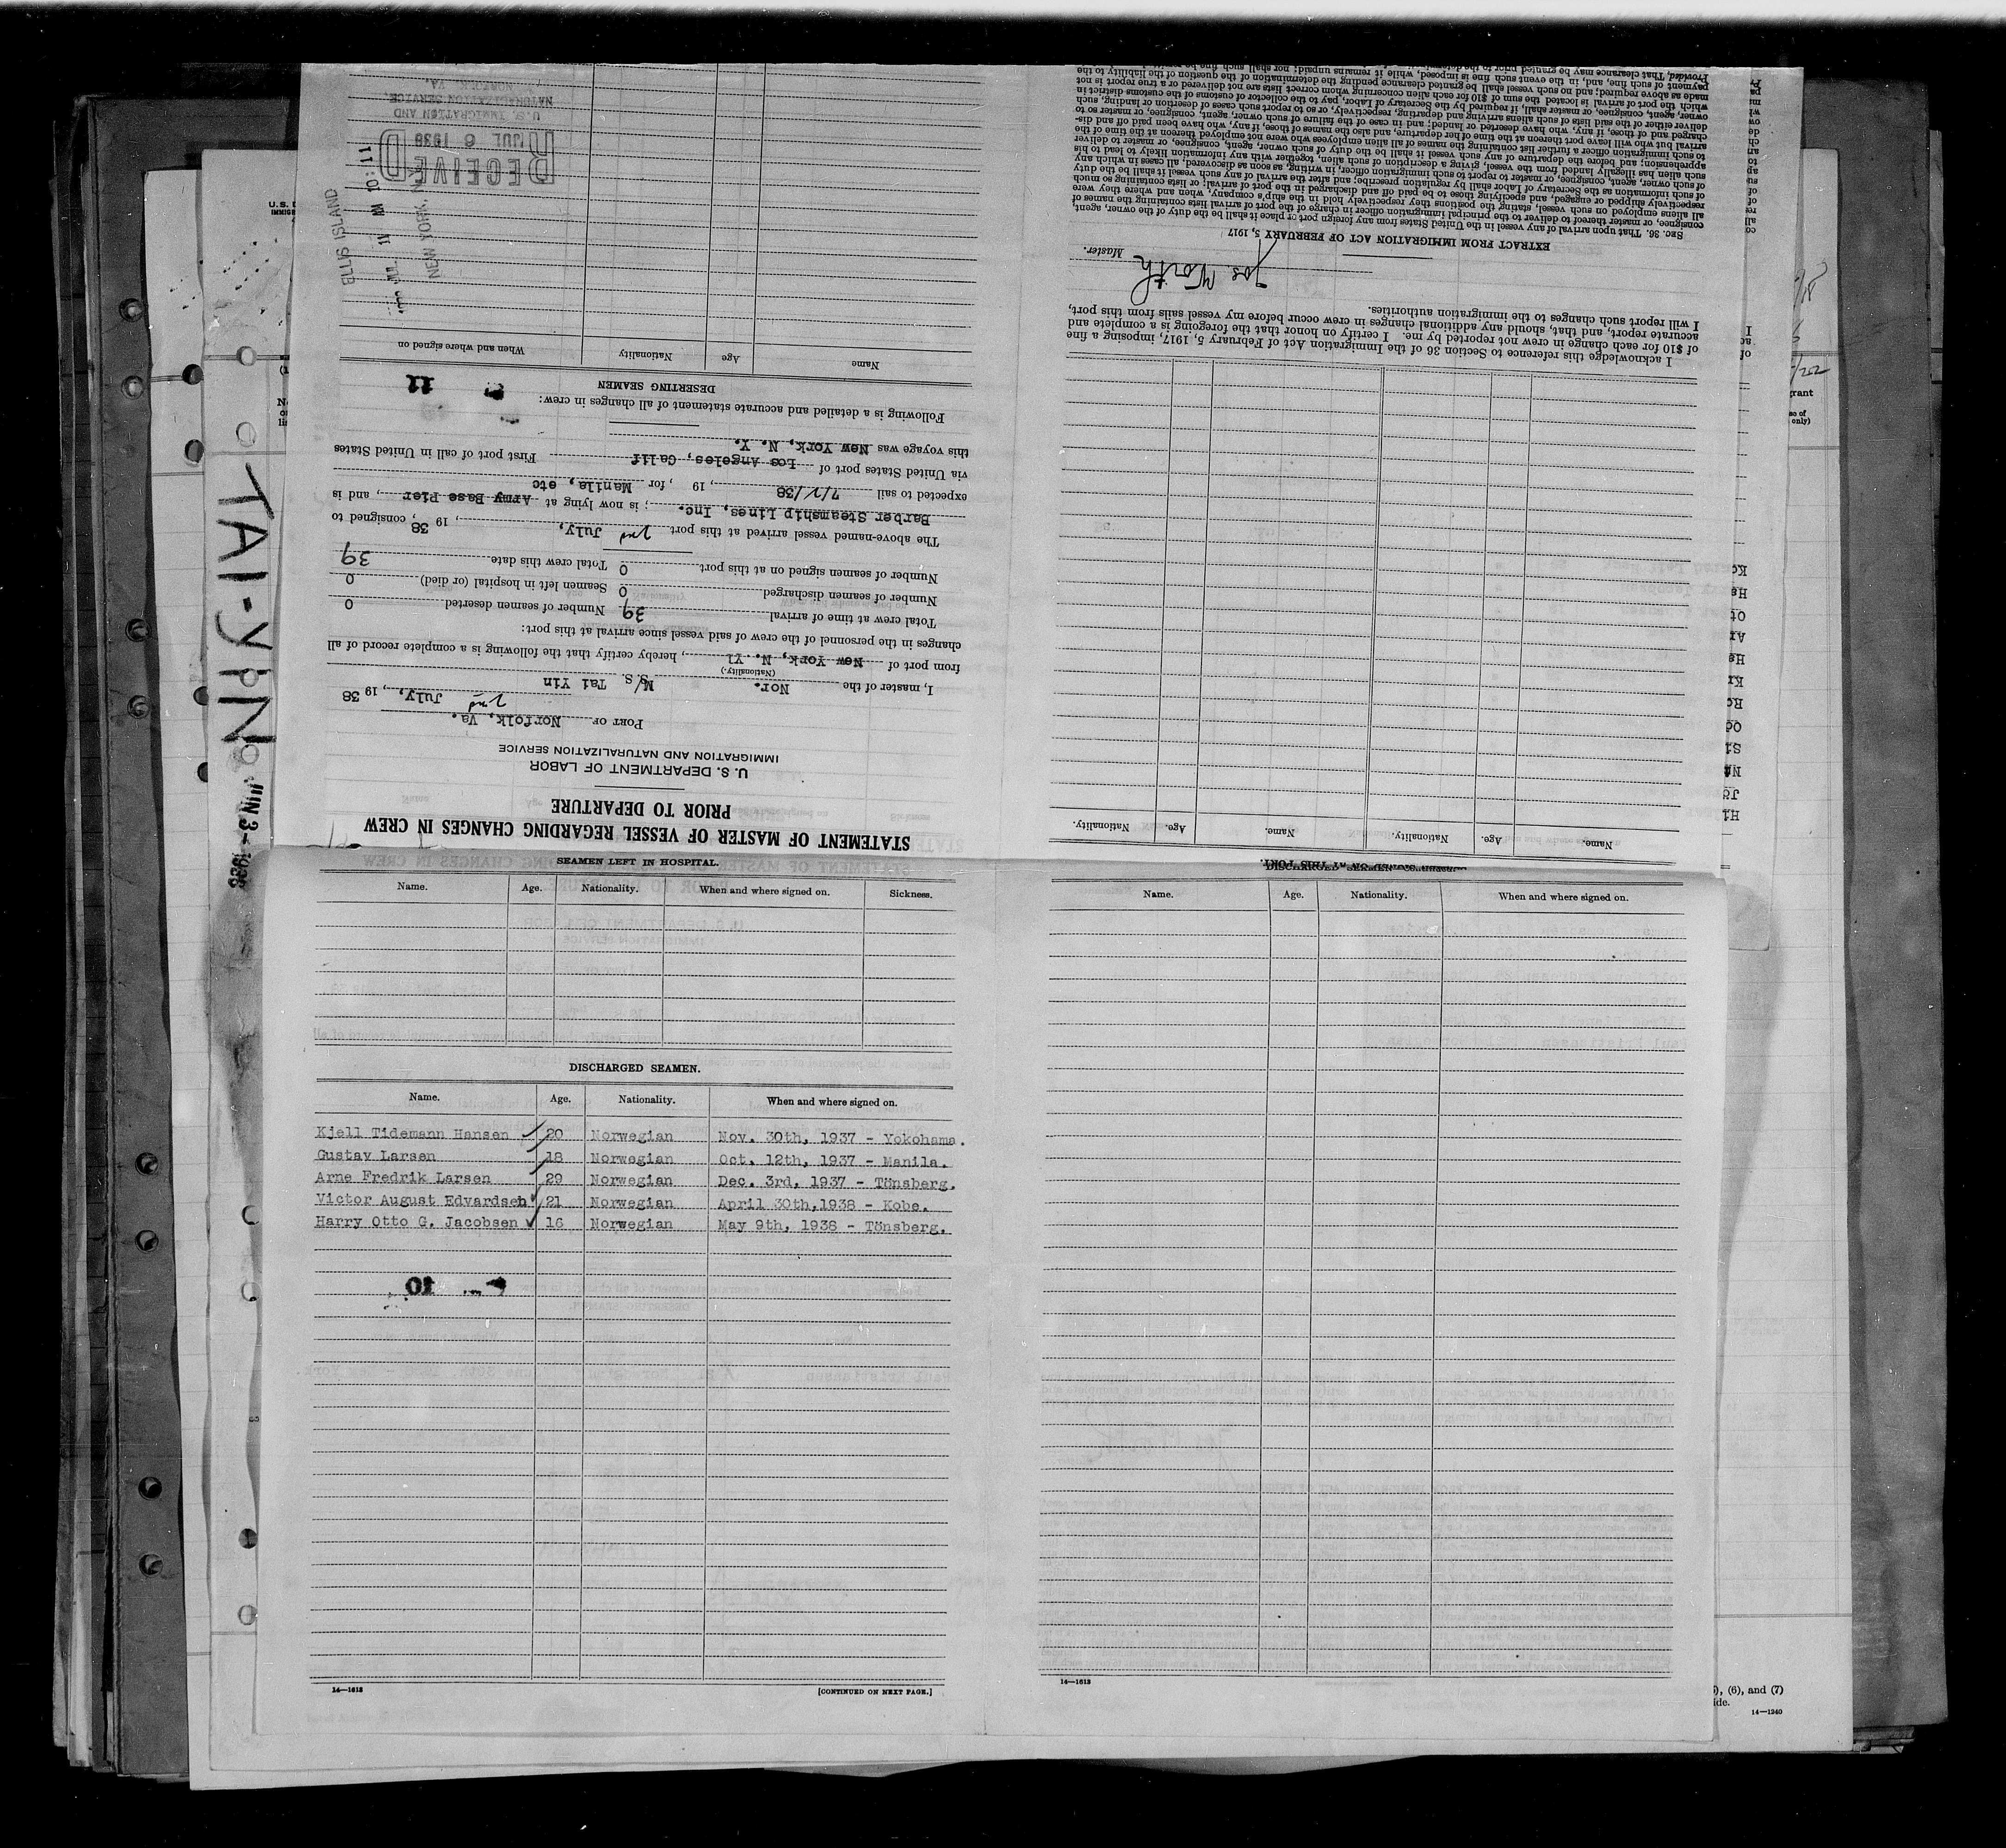 STATEMENT OF MASTER OF VESSEL REGARDING CHANGES IN CREW
PRIOR TO DEPARTURE
U. S. DEPARTMENT OF LABOR
IMMIGRATION AND NATURALIZATION SERVICE
PORT OF Norfolk, Va.
2nd July, , 19 38
I, master of the Nor. M/S. S. Tai Yin
(Nationality.)
from port of New York, N. Y1 , hereby certify that the following is a complete record of all
changes in the personnel of the crew of said vessel since arrival at this port:
Total crew at time of arrival 39 Number of seamen deserted 0
Number of seamen discharged 0 Seamen left in hospital (or died) 0
Number of seamen signed on at this port 0 Total crew this date 39
The above-named vessel arrived at this port 2nd July, , 19 38 , consigned to
Barber Steamship Lines, Inc. ; is now lying at Army Base Pier , and is
expected to sail 7/2/38 , 19 , for Manila, etc
via United States port of Los Angeles, Calif First port of call in United States
this voyage was New York, N. Y.
Following is a detailed and accurate statement of all changes in crew:
11
DESERTING SEAMEN
Name Age Nationality When and where signed on
ELLIS ISLAND
NEW YORK,
RECEIVED
JUL 6 1938
U. S. IMMIGRATION AND
NATURALIZATION SERVICE.
NORFOLK, VA.
Name. Age. Nationality. Name. Age. Nationality.
I acknowledge this reference to Section 36 of the Immigration Act of February 5, 1917, imposing a fine
of $10 for each change in crew not reported by me. I certify on honor that the foregoing is a complete and
accurate report, and that, should any additional changes in crew occur before my vessel sails from this port,
I will report such changes to the immigration authorities.
Master.
EXTRACT FROM IMMIGRATION ACT OF FEBRUARY 5, 1917
SEC. 36. That upon arrival of any vessel in the United States from any foreign port or place it shall be the duty of the owner, agent,
consignee, or master thereof to deliver to the principal immigration officer in charge of the port of arrival lists containing the names of
all aliens employed on such vessel, stating the positions they respectively hold in the ship's company, when and where they were
respectively shipped or engaged, and specifying those to be paid off and discharged in the port of arrival; or lists containing so much
of such information as the Secretary of Labor shall by regulation prescribe; and after the arrival of any such vessel it shall be the duty
of such owner, agent, consignee, or master to report to such immigration officer, in writing, as soon as discovered, all cases in which any
such alien has illegally landed from the vessel, giving a description of such alien, together with any information likely to lead to his
apprehension; and before the departure of any such vessel it shall be the duty of such owner, agent, consignee, or master to deliver
to such immigration officer a further list containing the names of all alien employees who were not employed thereon at the time of the
arrival but who will leave port thereon at the time of her departure, and also the names of those, if any, who have been paid off and dis-
charged and of those, if any, who have deserted or landed; and in case of the failure of such owner, agent, consignee, or master so to
deliver either of the said lists of such aliens arriving and departing, respectively, or so to report such cases of desertion or landing, such
owner, agent, consignee, or master shall, if required by the Secretary of Labor, pay to the collector of customs of the customs district in
which the port of arrival is located the sum of $10 for each alien concerning whom correct lists are not delivered or a true report is not
made as above required; and no such vessel shall be granted clearance pending the determination of the question of the liability to the
payment of such fine, and, in the event such fine is imposed, while it remains unpaid; nor shall such fine be
Provided, That clearance may be granted prior to the
TAI-YIN
JUN 3- 1938
SEAMEN LEFT IN HOSPITAL.
Name. Age. Nationality. When and where signed on. Sickness.
DISCHARGED SEAMEN.
Name. Age. Nationality. When and where signed on.
Kjell Tidemann Hansen 20 Norwegian Nov. 30th, 1937 - Yokohama.
Gustav Larsen 18 Norwegian Oct. 12th, 1937 - Manila.
Arne Fredrik Larsen 29 Norwegian Dec. 3rd, 1937 - Tönsberg.
Victor August Edvardsen 21 Norwegian April 30th,1938 - Kobe.
Harry Otto G. Jacobsen 16 Norwegian May 9th, 1938 - Tönsberg.
10
14—1613 [CONTINUED ON NEXT PAGE.]
DISCHARGED SEAMEN
Name. Age. Nationality. When and where signed on.
14—1613
(6), and (7)
14—1240